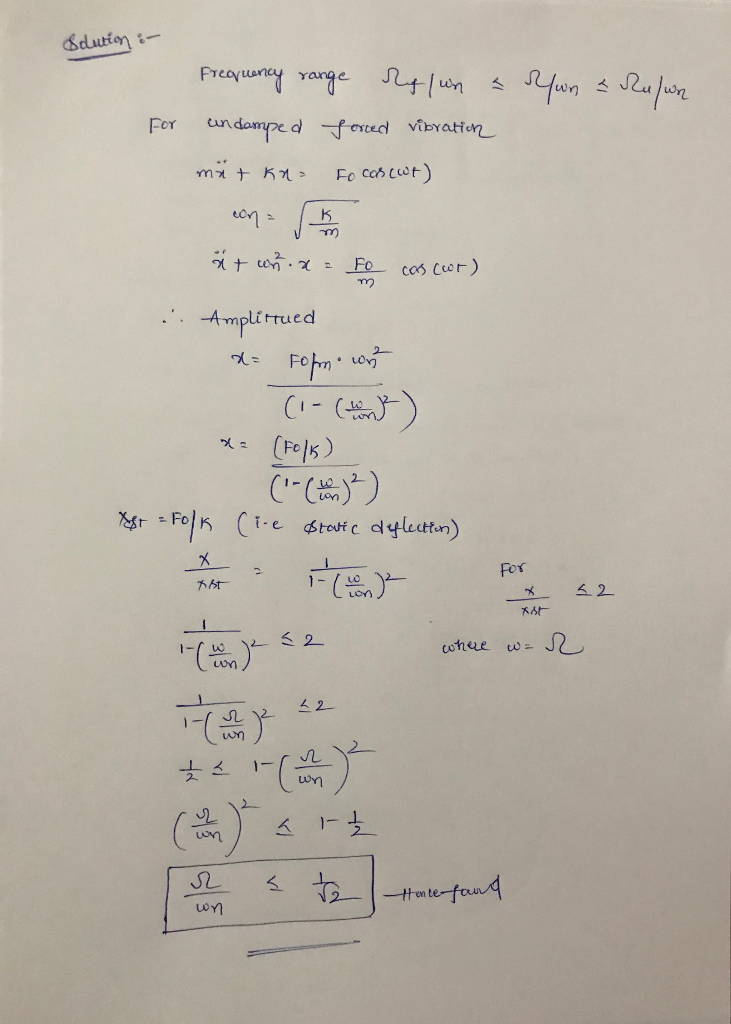 Solution :-
Frequency range Ωf/ωn ≤ Ω/ωn ≤ Ωu/ωn
For undamped forced vibration
mẍ + Kx = F0 cos(ωt)
ωn = √(K/m)
ẍ + ωn². x = F0/m cos(ωt)
∴ Amplittued
x = F0/m · ωn² / (1 - (ω/ωn)²)
x = (F0/K) / (1 - (ω/ωn)²)
Xst = F0/K (i.e static deflection)
X/Xst = 1 / 1 - (ω/ωn)² For X/Xst ≤ 2
1 / 1 - (ω/ωn)² ≤ 2 where ω = Ω
1 / 1 - (Ω/ωn)² ≤ 2
1/2 ≤ 1 - (Ω/ωn)²
(Ω/ωn)² ≤ 1 - 1/2
Ω/ωn ≤ 1/√2 Hence found